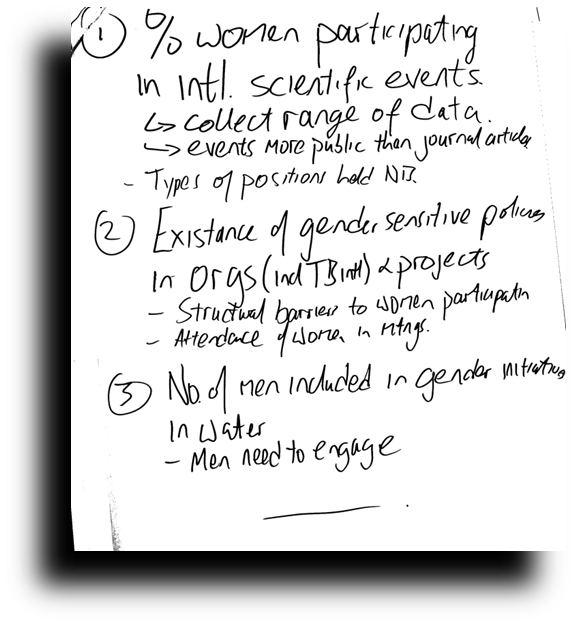 ① % women participating
in intl. scientific events.
↳ collect range of data.
↳ events more public than journal articles
- Types of positions held NB.
② Existance of gender sensitive policies
in orgs (incl TB intl) & projects
- Structural barriers to women participatn
- Attendance of women in mtngs.
③ No. of men included in gender initiatives
in water
- Men need to engage